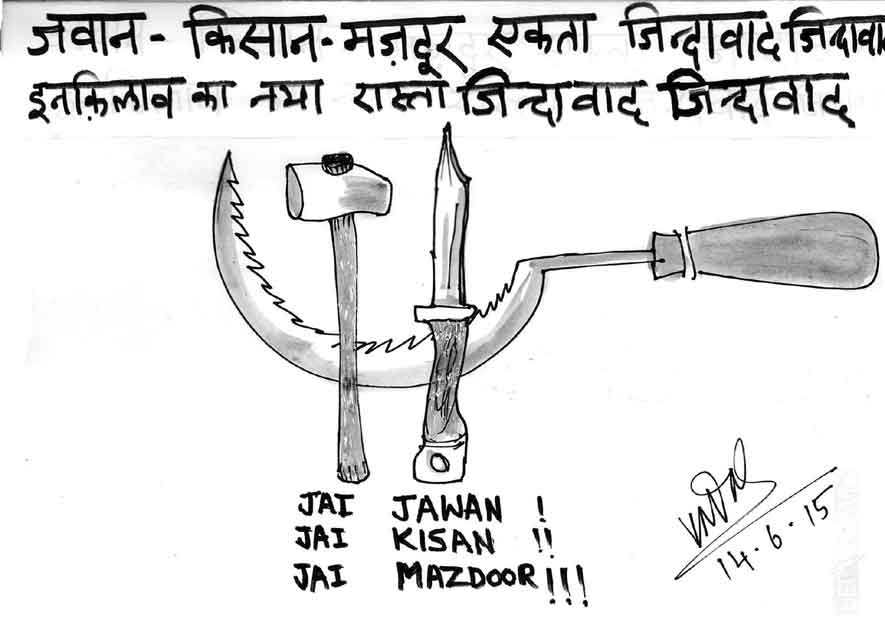 जवान - किसान - मज़दूर एकता जिन्दावाद जिन्दावा
इनक़िलाव का नया रास्ता जिन्दावाद जिन्दावाद
JAI JAWAN !
JAI KISAN !!
JAI MAZDOOR !!!
14.6.15